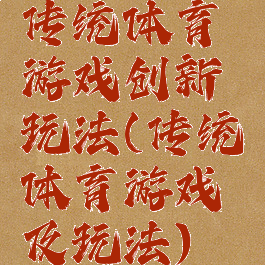 传统体育
游戏创新
玩法(传统
体育游戏
及玩法)